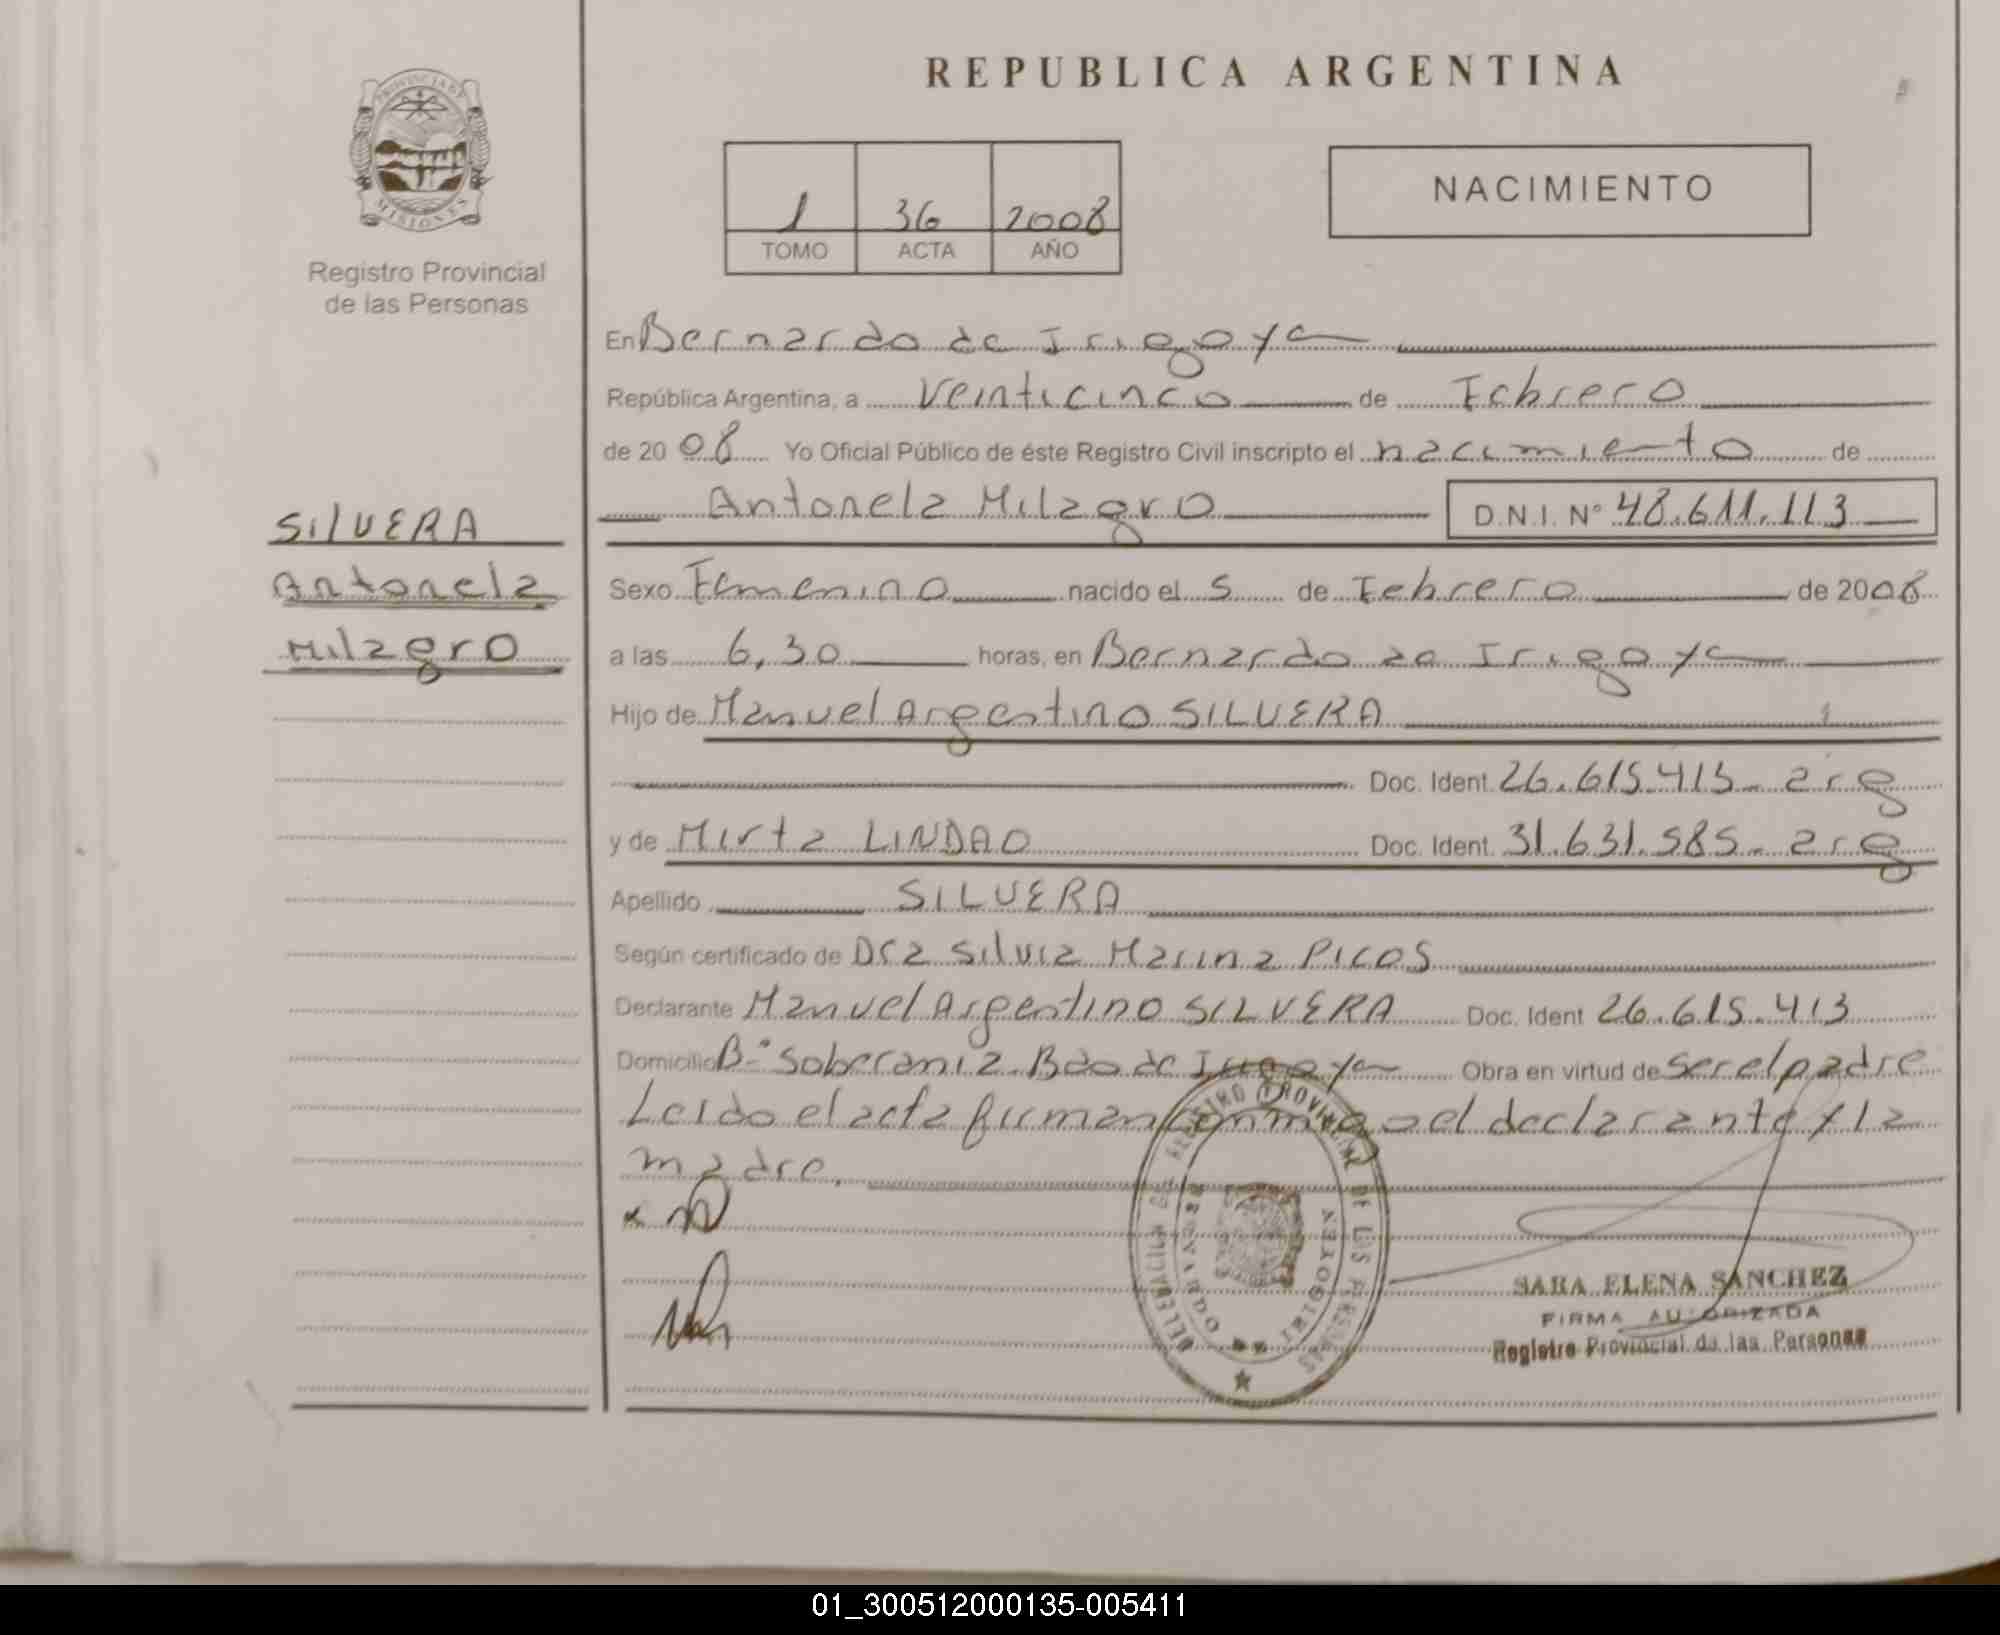 REPUBLICA ARGENTINA
PROVINCIA DE
MISIONES
Registro Provincial
de las Personas
1 36 2008
TOMO ACTA AÑO
NACIMIENTO
En Bernardo de Irigoye
República Argentina, a Veinticinco de Febrero
de 2008 Yo Oficial Público de éste Registro Civil inscripto el nacimiento de
Antonela Milagro D.N.I. Nº 48.611.113
SILVERA
Antonela
Milagro
Sexo Femenino nacido el 5 de Febrero de 2008
a las 6,30 horas, en Bernardo de Irigoye
Hijo de Manuel Argentino SILVERA
Doc. Ident. 26.615.413 - arg
y de Mirta LINDAO Doc. Ident. 31.631.585 - arg
Apellido SILVERA
Según certificado de Dra Silvia Marina PICOS
Declarante Manuel Argentino SILVERA Doc. Ident 26.615.413
Domicilio Bº Soberania. Bdo de Irigoye Obra en virtud de ser el padre
Leido el acta firman conmigo el declarante y la
madre.
REGISTRO PROVINCIAL DE LAS PERSONAS
BERNARDO DE IRIGOYEN
SARA ELENA SANCHEZ
FIRMA AUTORIZADA
Registro Provincial de las Personas
01_300512000135-005411